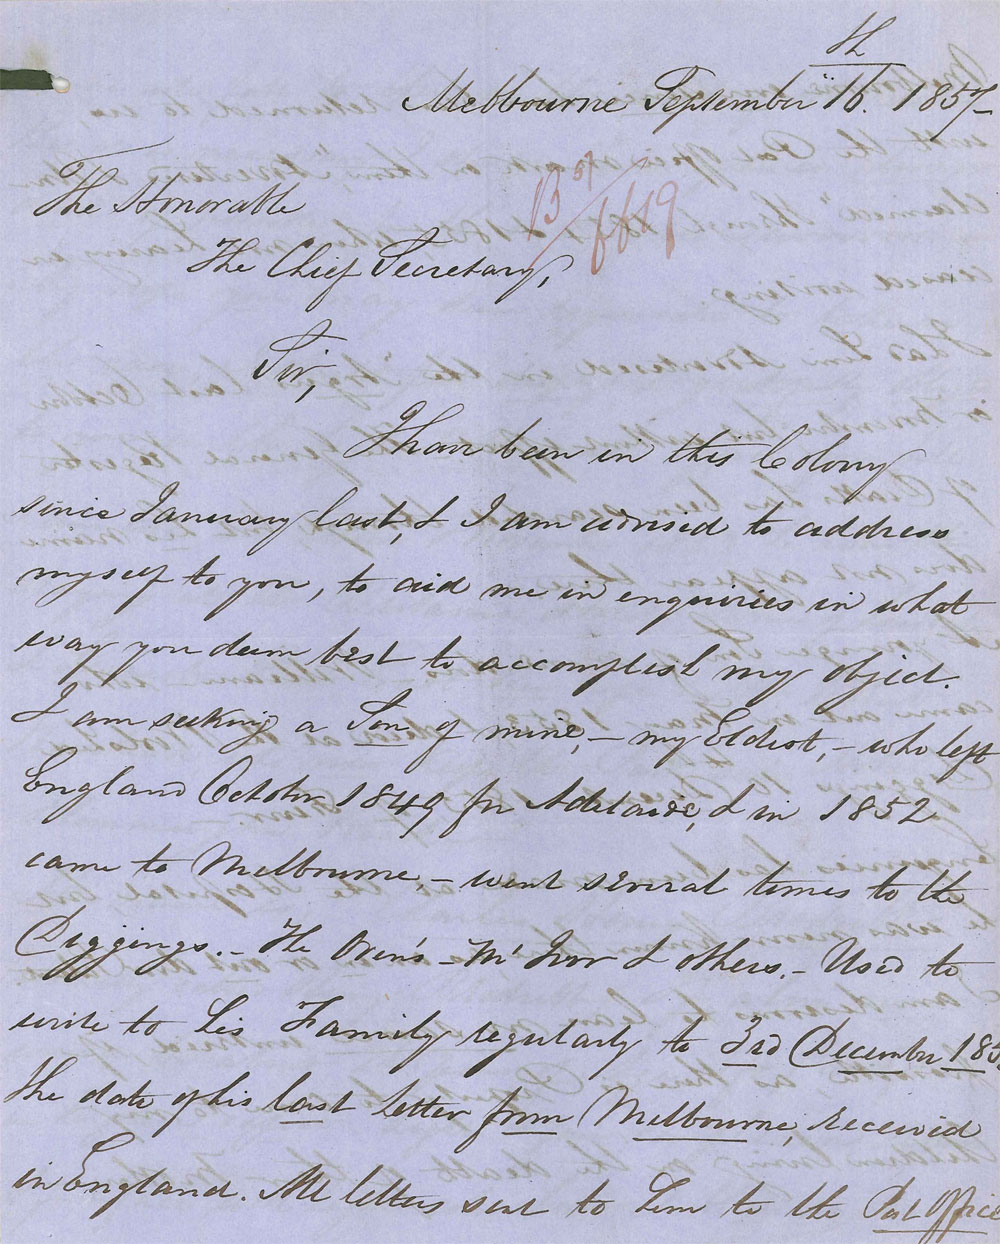 th
Melbourne September 16. 1857
The Honorable
The Chief Secretary,
B 57/6619
Sir,
I have been in this Colony
since January last, & I am advised to address
myself to you, to aid me in enquiries in what
way you deem best to accomplish my object.
I am seeking a Son of mine, – my Eldest, – who left
England October 1849 for Adelaide, & in 1852
came to Melbourne, – went several times to the
Diggings. – The Oven's – McIvor & others. – Used to
write to his Family regularly to 3rd December
the date of his last letter from Melbourne, received
in England. All letters sent to him to the Post Office